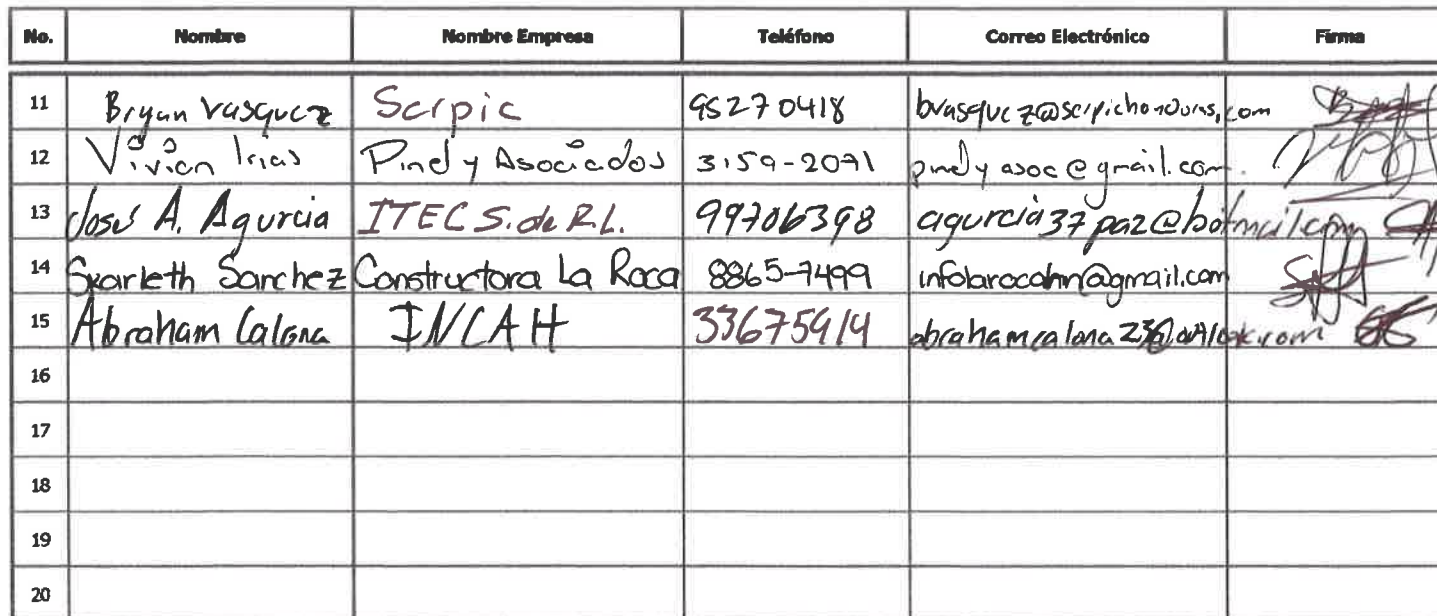 No. Nombre Nombre Empresa Teléfono Correo Electrónico Firma
11 Bryan Vasquez Serpic 95270418 bvasquez@serpichonduras.com
12 Vivian Irias Pinel y Asociados 3159-2071 pinelyasoc@gmail.com.
13 José A. Agurcia ITEC S. de R.L. 99706398 agurcia37paz@hotmail.com
14 Skarleth Sanchez Constructora La Roca 8865-7499 infolarocahn@gmail.com
15 Abraham Calona INCAH 33675914
16
17
18
19
20